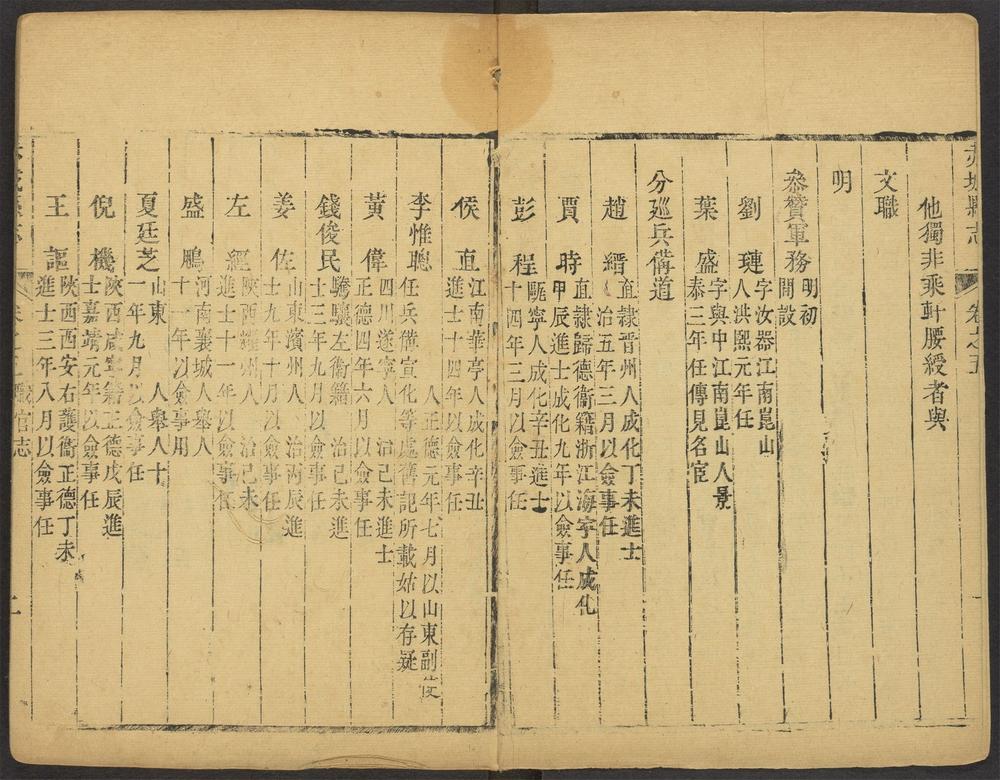 赤城縣志 卷之五
他獨非乘軒腰綬者與
文職
明
叅贊軍務明初
間設
劉璉字汝器江南崑山
人洪熙元年任
葉盛字與中江南崑山人景
泰三年任傳見名宦
分廵兵備道
趙縉直隸晉州人成化丁未進士
治五年三月以僉事任
賈時直隸歸德衞籍浙江海寧人成化
甲辰進士成化九年以僉事任
彭程甌寧人成化辛丑進士
十四年三月以僉事任
侯直江南華亭人成化辛丑
進士十四年以僉事任
李惟聰 人正德元年七月以山東副使
任兵備宣化等處舊記所載姑以存疑
黃偉四川遂寧人 治己未進士
正德四年六月以僉事任
錢俊民驍騎左衞籍 治己未進
士三年九月以僉事任
姜佐山東濱州人 治丙辰進
士九年十月以僉事任
左經陝西耀州人 治己未
進士十一年以僉事任
盛鵬河南襄城人舉人
十一年以僉事用
夏廷芝山東 人舉人十
一年九月以僉事任
倪機陝西咸寧籍正德戊辰進
士嘉靖元年以僉事任
王謳陝西西安右護衞正德丁未
進士三年八月以僉事任
職官志
二